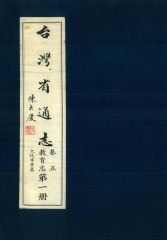 台灣省通志
陳大慶
卷五
教育志
第一册